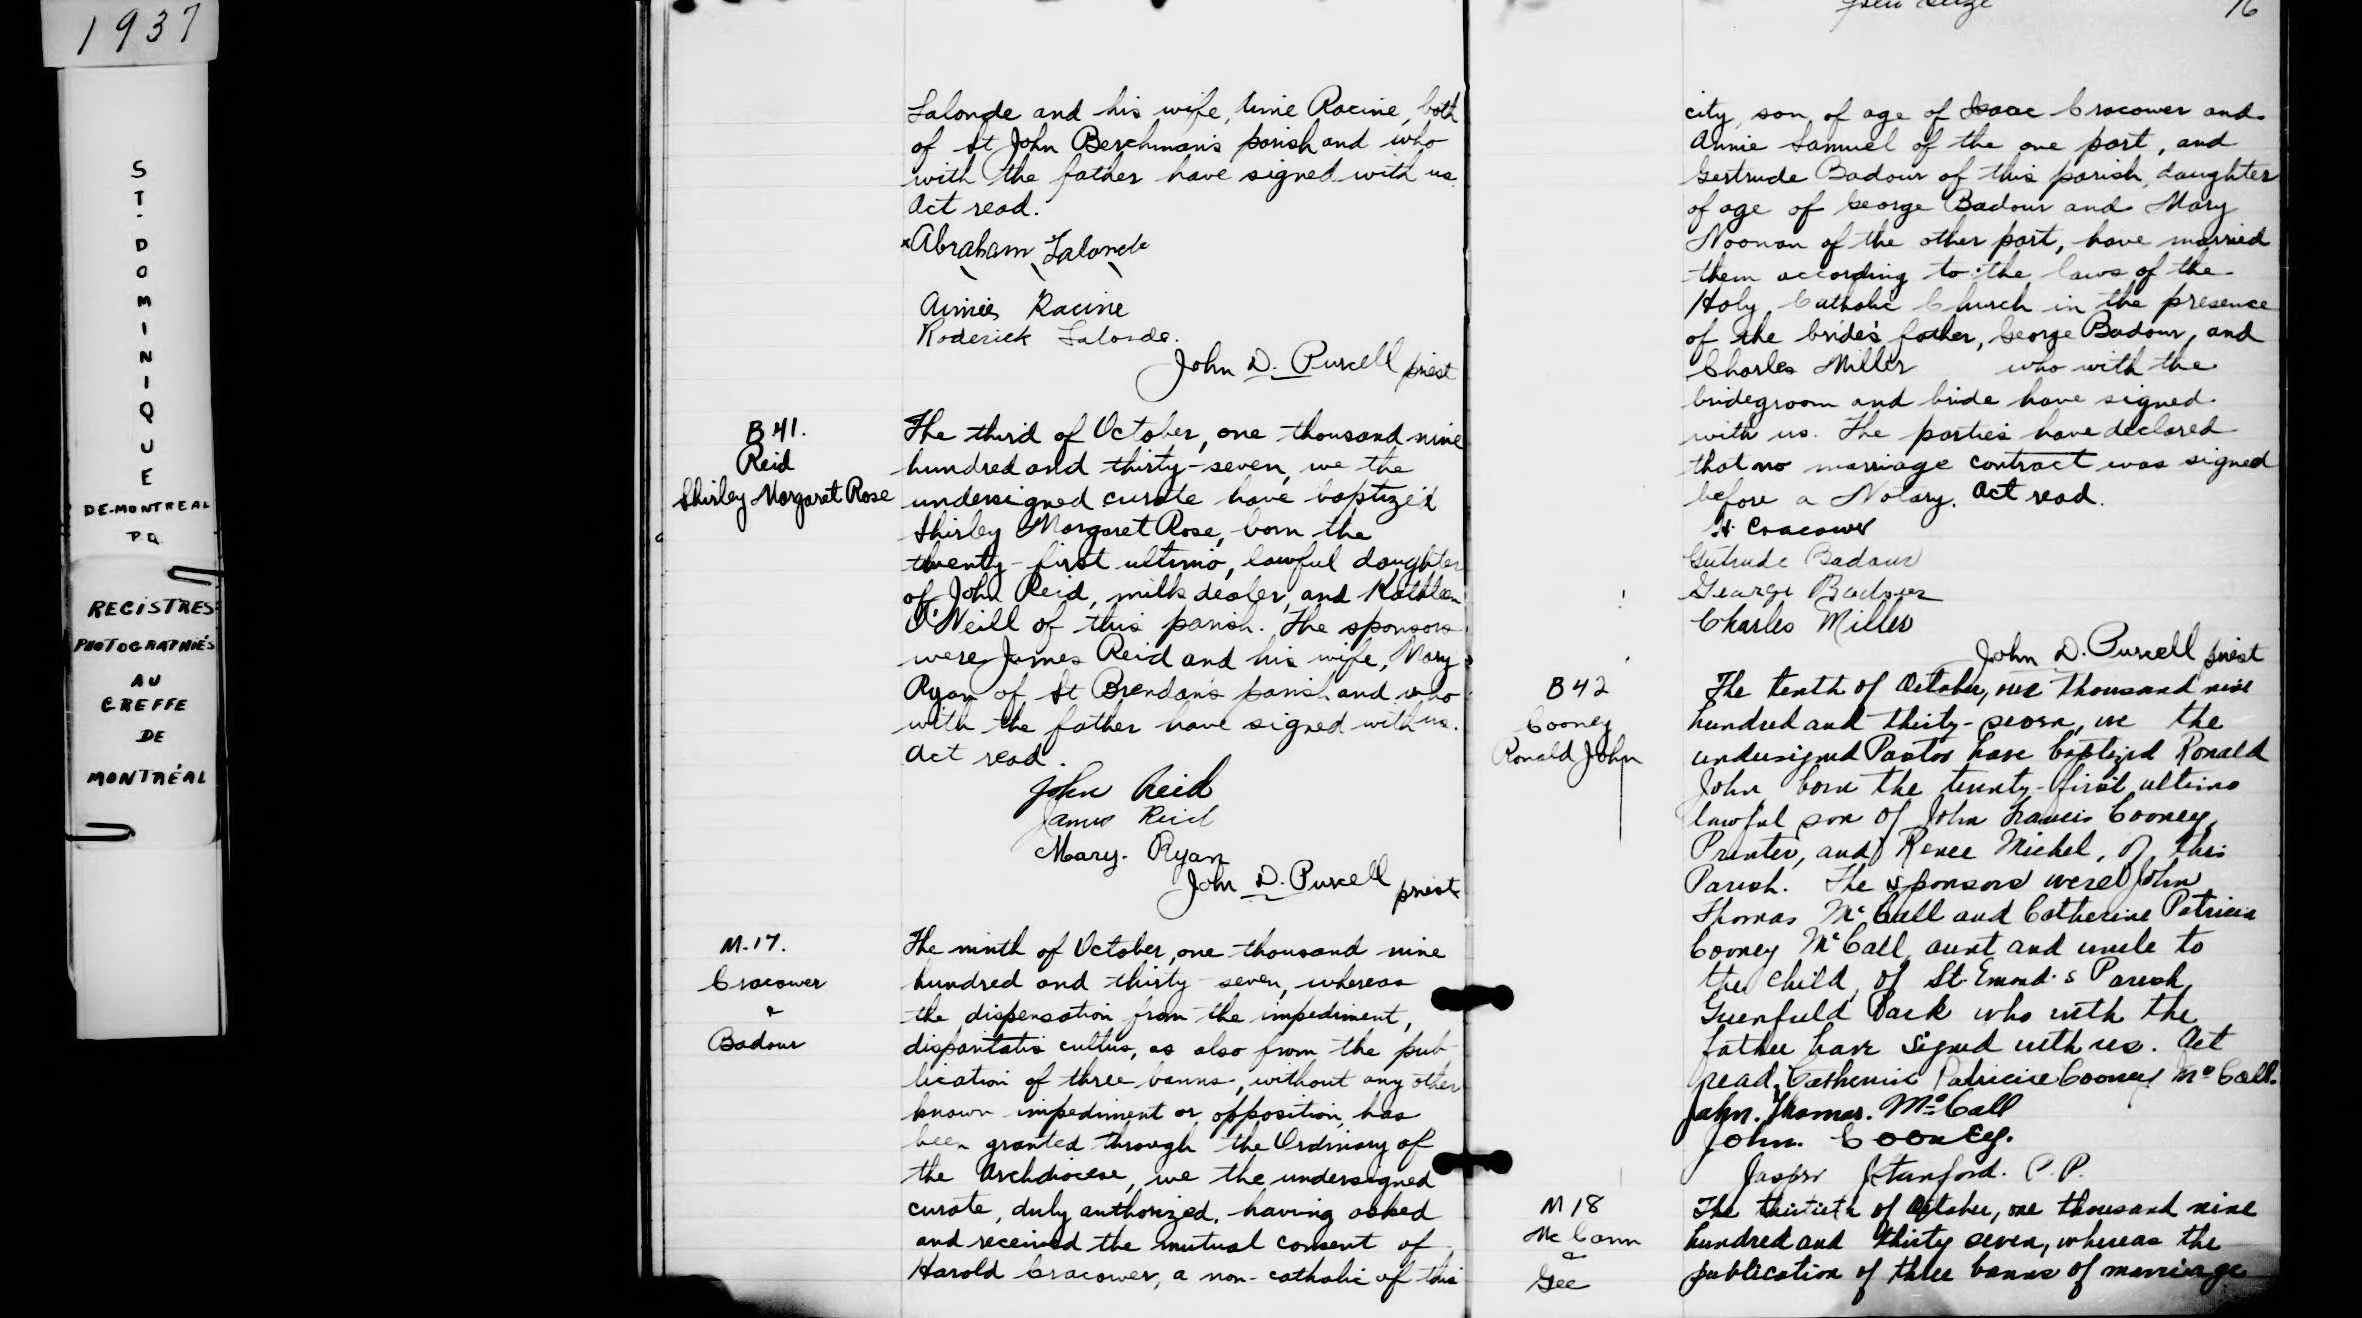 1937
ST-DOMINIQUE
DE-MONTREAL
P.Q
REGISTRES
PHOTOGRAPHIÉS
AU
GREFFE
DE
MONTRÉAL
Lalonde and his wife, Aimé Racine, both
of St John Berchman's parish and who
with the father have signed with us.
Act read.
Abraham Lalonde
Aimée Racine
Roderick Lalonde.
John D. Purcell priest
B 41.
Reid
Shirley Margaret Rose
The third of October, one thousand nine
hundred and thirty-seven, we the
undersigned curate have baptized
Shirley Margaret Rose, born the
twenty-first ultimo, lawful daughter
of John Reid, milk dealer, and Kathleen
O'Neill of this parish. The sponsors
were James Reid and his wife, Mary
Ryan of St Brendan's parish and who
with the father have signed with us.
Act read.
John Reid
James Reid
Mary. Ryan
John D. Purcell priest
M.17.
Cracower
&
Badour
The ninth of October, one thousand nine
hundred and thirty-seven, whereas
the dispensation from the impediment,
disparitatis cultus, as also from the pub-
lication of three banns, without any other
known impediment or opposition, has
been granted through the Ordinary of
the Archdiocese, we the undersigned
curate, duly authorized, having asked
and received the mutual consent of
Harold Cracower, a non-catholic of this
76
city, son of age of Isaac Cracower and
Annie Samuel of the one part, and
Gertrude Badour of this parish, daughter
of age of George Badour and Mary
Noonan of the other part, have married
them according to the laws of the
Holy Catholic Church in the presence
of the bride's father, George Badour, and
Charles Miller who with the
bridegroom and bride have signed
with us. The parties have declared
that no marriage contract was signed
before a Notary. Act read.
H. Cracower
Gertrude Badour
George Badour
Charles Miller
John D. Purcell priest
B 42
Cooney
Ronald John
The tenth of October, one thousand nine
hundred and thirty-seven, we the
undersigned Pastor have baptized Ronald
John born the twenty-first ultimo
lawful son of John Francis Cooney,
Printer, and Renee Michel, of this
Parish. The sponsors were John
Thomas McCall and Catherine Patricia
Cooney McCall, aunt and uncle to
the child, of St. Emard's Parish
Greenfield Park who with the
father have signed with us. Act
read. Catherine Patricia Cooney McCall.
John. Thomas. McCall
John. Cooney.
Jasper J. Stanford. P.P.
M 18
McCann
&
Gee
The thirtieth of October, one thousand nine
hundred and thirty seven, whereas the
publication of three banns of marriage